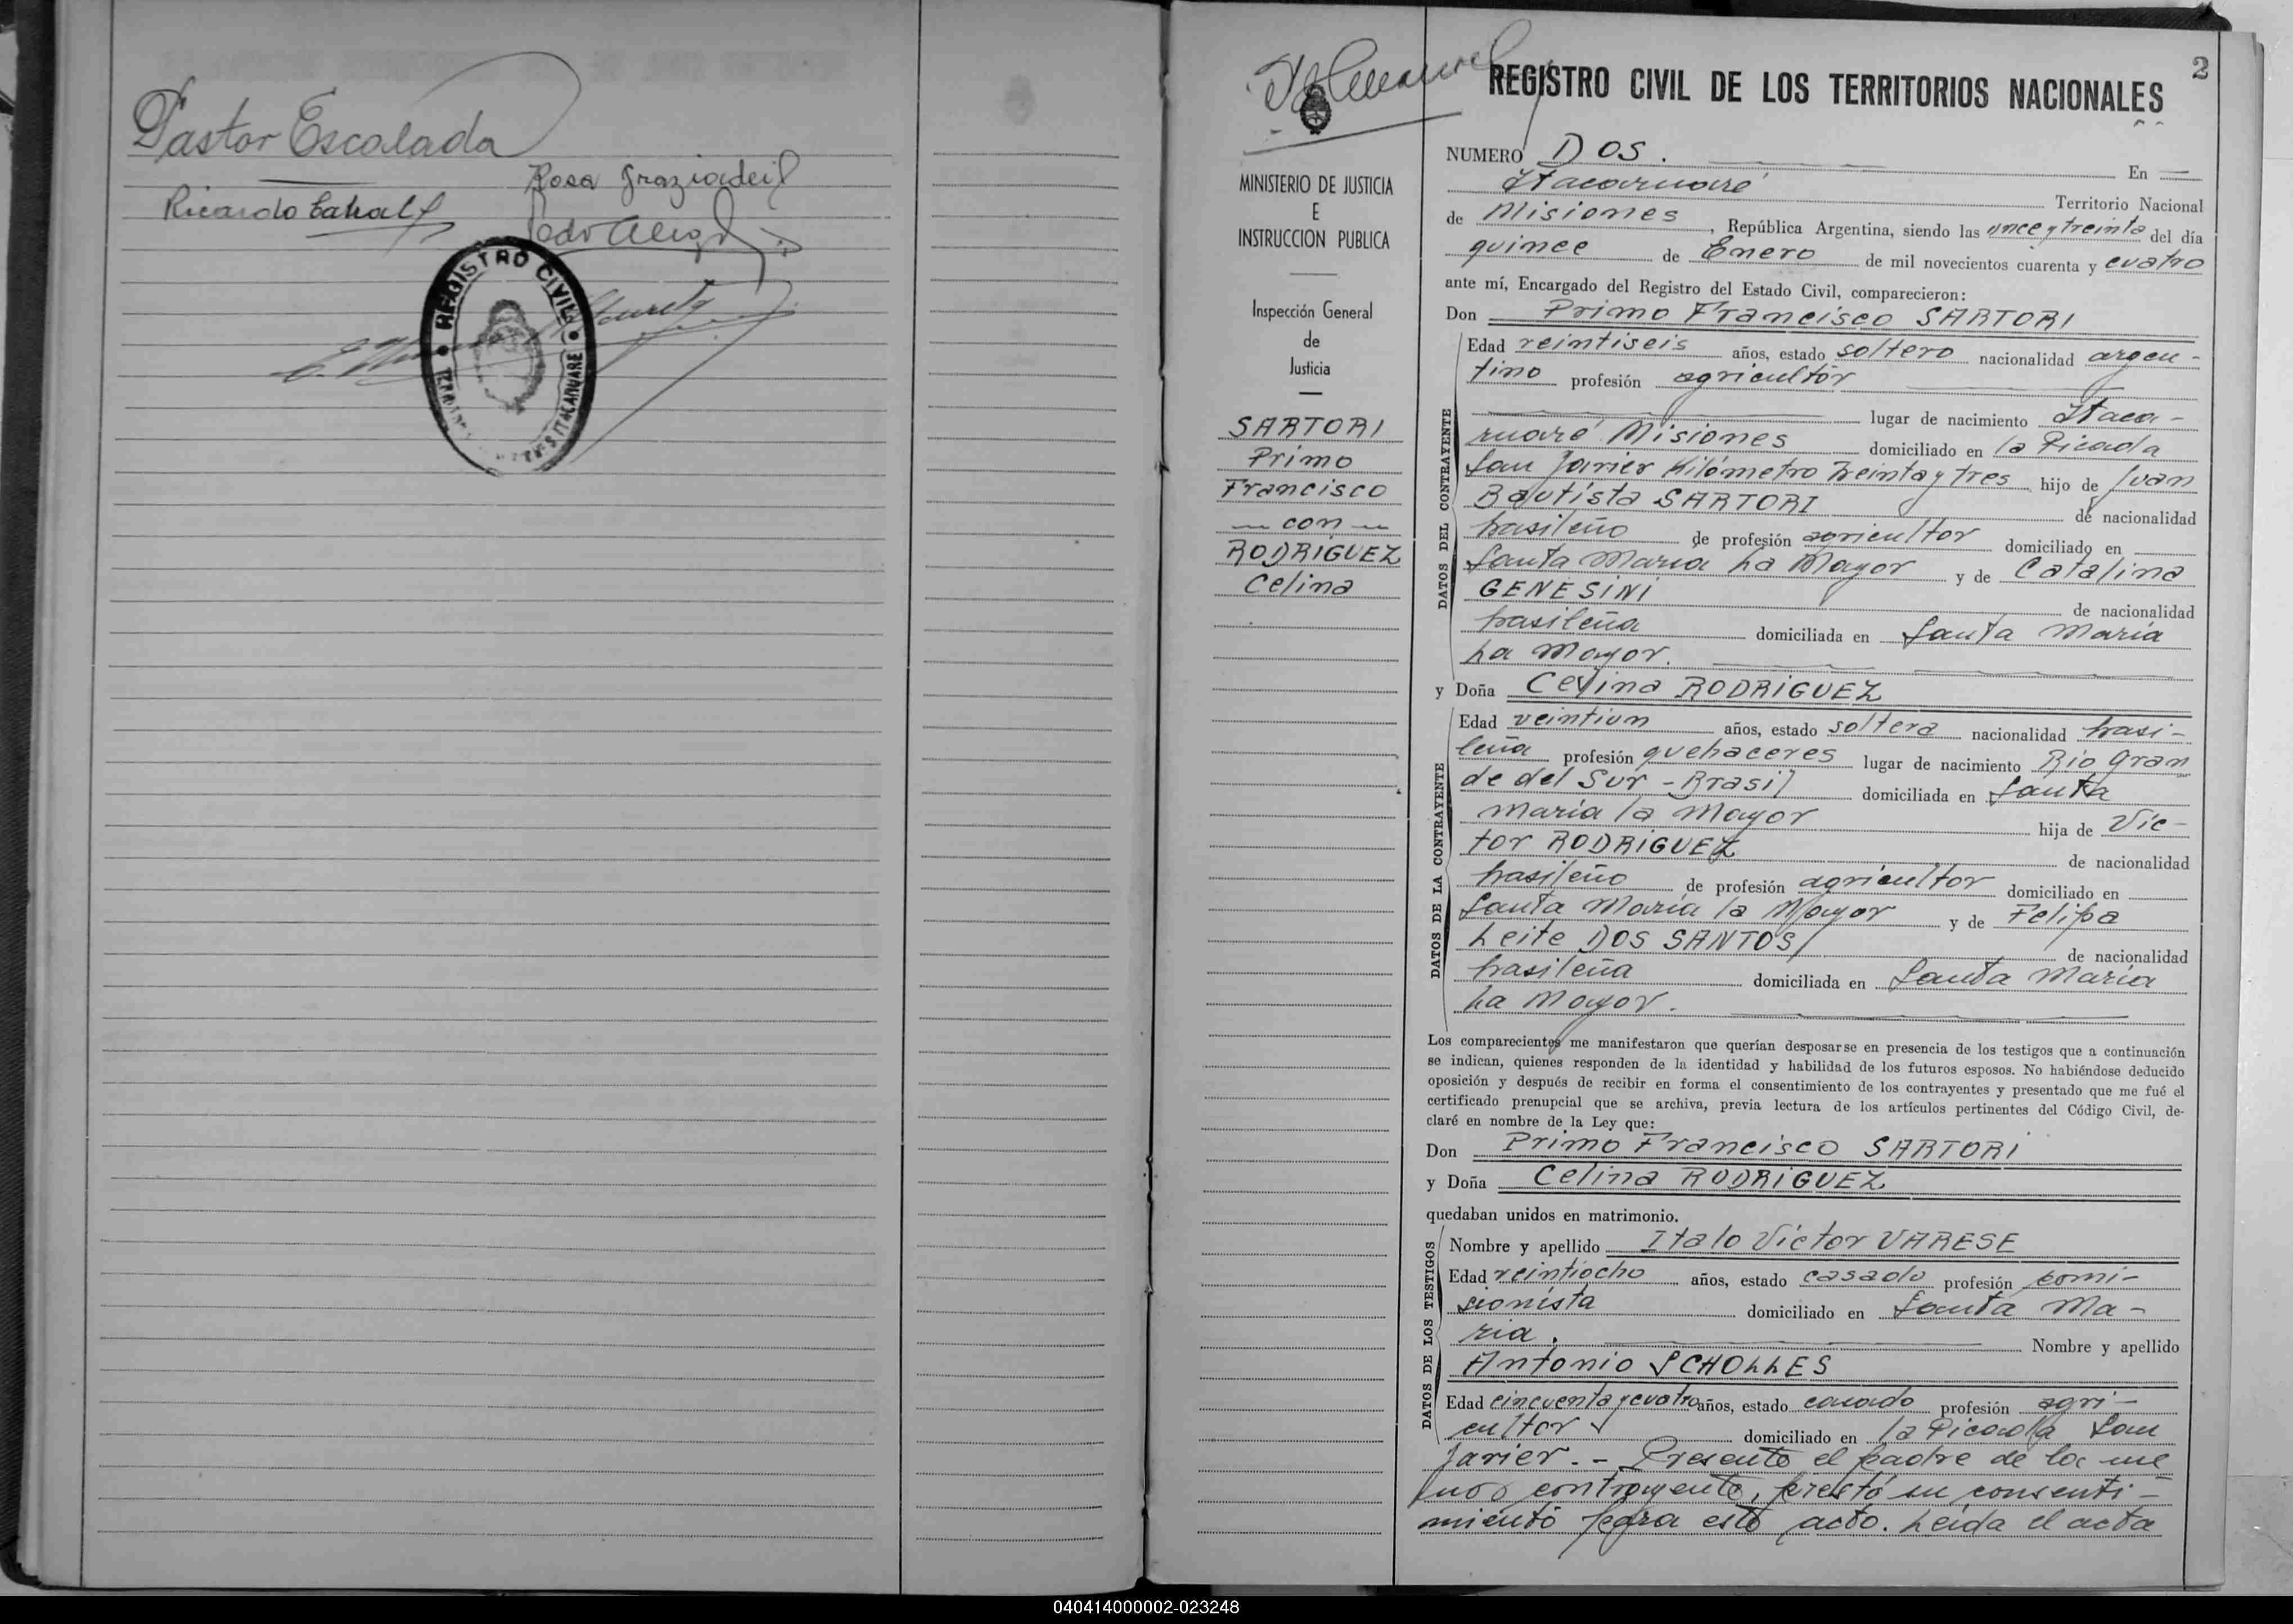 Pastor Escalada
Rosa Graziadeil
Ricardo Cabral
REGISTRO CIVIL
ITACARUARE
2
REGISTRO CIVIL DE LOS TERRITORIOS NACIONALES
MINISTERIO DE JUSTICIA
E
INSTRUCCION PUBLICA
Inspección General
de
Justicia
SARTORI
Primo
Francisco
— con —
RODRIGUEZ
Celina
NUMERO DOS. En
Itacaruaré Territorio Nacional
de Misiones, República Argentina, siendo las once y treinta del día
quince de Enero de mil novecientos cuarenta y cuatro
ante mí, Encargado del Registro del Estado Civil, comparecieron:
Don Primo Francisco SARTORI
DATOS DEL CONTRAYENTE
Edad veintiseis años, estado soltero nacionalidad argen-
tino profesión agricultor
lugar de nacimiento Itaca-
ruaré Misiones domiciliado en la Picada
San Javier Kilómetro treinta y tres hijo de Juan
Bautista SARTORI de nacionalidad
brasileño de profesión agricultor domiciliado en
Santa Maria La Mayor y de Catalina
GENESINI de nacionalidad
brasileña domiciliada en Santa Maria
La Mayor.
y Doña Celina RODRIGUEZ
DATOS DE LA CONTRAYENTE
Edad veintiun años, estado soltera nacionalidad brasi-
leña profesión quehaceres lugar de nacimiento Rio Gran
de del Sur - Brasil domiciliada en Santa
Maria la Mayor hija de Vic-
tor RODRIGUEZ de nacionalidad
brasileño de profesión agricultor domiciliado en
Santa Maria la Mayor y de Felipa
Leite DOS SANTOS de nacionalidad
brasileña domiciliada en Santa Maria
La Mayor.
Los comparecientes me manifestaron que querían desposarse en presencia de los testigos que a continuación
se indican, quienes responden de la identidad y habilidad de los futuros esposos. No habiéndose deducido
oposición y después de recibir en forma el consentimiento de los contrayentes y presentado que me fué el
certificado prenupcial que se archiva, previa lectura de los artículos pertinentes del Código Civil, de-
claré en nombre de la Ley que:
Don Primo Francisco SARTORI
y Doña Celina RODRIGUEZ
quedaban unidos en matrimonio.
DATOS DE LOS TESTIGOS
Nombre y apellido Italo Victor VARESE
Edad veintiocho años, estado casado profesión comi-
sionista domiciliado en Santa Ma-
ria. Nombre y apellido
Antonio SCHOLLES
Edad cincuenta y cuatro años, estado casado profesión agri-
cultor domiciliado en la Picada San
Javier. - Presente el padre de la me
nor contrayente, prestó su consenti-
miento para este acto. Leida el acta
040414000002-023248